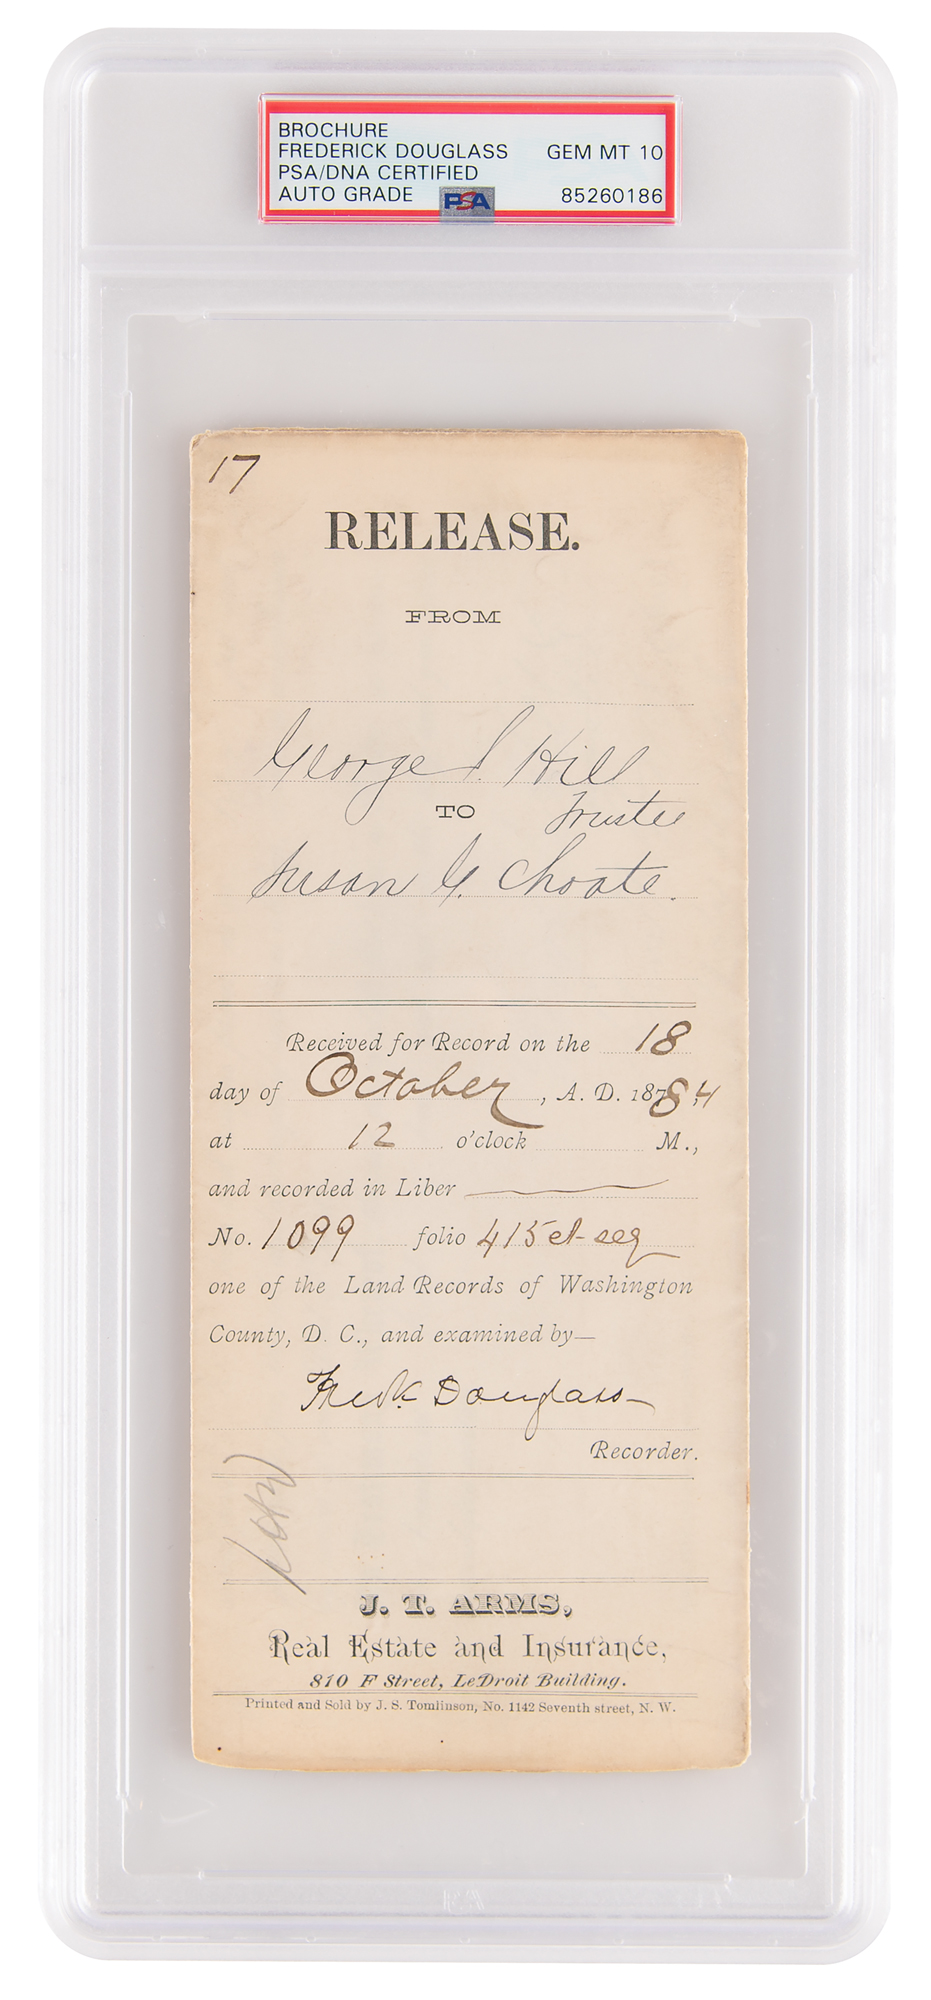 BROCHURE
FREDERICK DOUGLASS GEM MT 10
PSA/DNA CERTIFIED
AUTO GRADE PSA 85260186
17
RELEASE.
FROM
George I. Hill
TO Trustee
Susan G. Choate.
Received for Record on the 18
day of October, A. D. 1878 84,
at 12 o'clock M.,
and recorded in Liber
No. 1099 folio 415 et seq
one of the Land Records of Washington
County, D. C., and examined by—
Fredk Douglass
Recorder.
J. T. ARMS,
Real Estate and Insurance,
810 F Street, LeDroit Building.
Printed and Sold by J. S. Tomlinson, No. 1142 Seventh street, N. W.